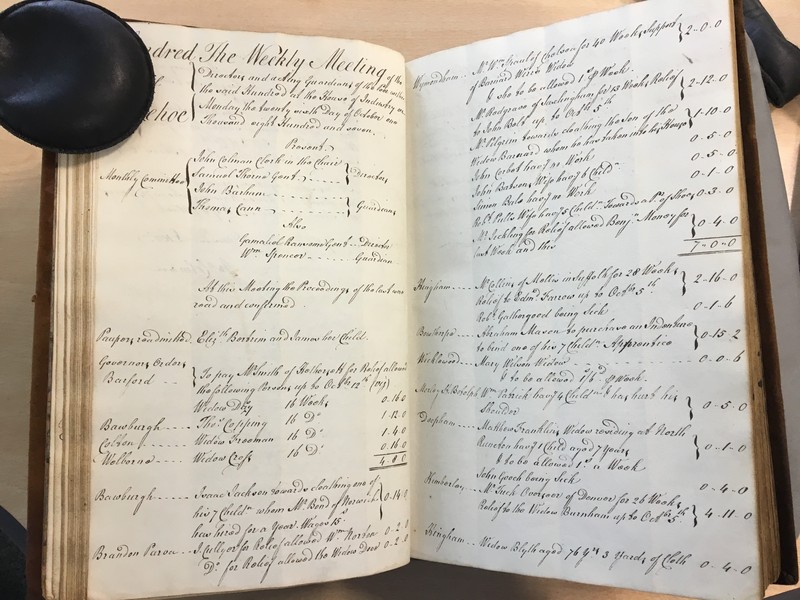 ndred The Weekly Meeting of the
Directors and acting Guardians of the Poor within
the said Hundred at the House of Industry on
Monday the twenty sixth Day of October one
Thousand eight Hundred and seven.
ehoe
Present
Monthly Committee
John Colman Clerk in the Chair
Samuel Thorne Gent Directors
John Barham
Thomas Cann Guardians
Also
Gamaliel Ransome Gent Director
Wm Spencer Guardian
At this Meeting the Proceedings of the last were
read and confirmed
Paupers readmitted Elizth Bertrim and James her Child.
Governors Orders
To pay Mr Smith of Hethersett for Relief allowed
Barford
the following Persons up to Octbr 12th
Widow 16 Weeks 0.16.0
Bawburgh Thos Copping 16 Do 1.12.0
Colton Widow Freeman 16 Do 1.4.0
Welborne Widow Cross 16 Do 0.16.0
4.8.0
Bawburgh Isaac Jackson towards cloathing one of
his 7 Childn whom Mr Bond of Norwich
has hired for a Year. Wages 15s 0.14.0
Brandon Parva J. Cullyer for Relief allowed Wm Norton 0.2.0
Do for Relief allowed the Widow Dove 0.2.0
Wymondham Mr Wm of for 40 Weeks Support
of Barnard Wires Widow 2-0-0
& she to be allowed 1s P Week.
Mr Hedgrave of Suslingham for 13 Weeks Relief
to John Bolt up to Octbr 5th 2-12-0
Mr Pilgrim towards cloathing the Son of the
Widow Barnard whom he has taken into his House 1-10-0
John Corbet havg no Work 0-5-0
John Batson, Wife havg 6 Childn 0-5-0
Simon Bale havg no Work 0-1-0
Robt Pells Wife havg 5 Childn Towards a Pr of Shoes 0-3-0
Mr Jeckling for Relief allowed Benjn Money for
last Week and this 0-4-0
7-0-0
Hingham Mr Collins of Mellis in Suffolk for 28 Weeks
Relief to Edmd Farrow up to Octbr 5th 2-16-0
Robt Gathergood being Sick 0-1-6
Bowthorpe Abraham Mason to purchase an Indenture
to bind one of his 7 Childn Apprentice 0-15-2
Wicklewood Mary Wilson Widow 0-0-6
& to be allowed 1/6d P Week.
Morley St Botolph Wm Patrick havg 4 Childn and has hurt his
Shoulder 0-5-0
Deopham Matthew Franklin's Widow residing at North
Runcton havg 1 Child aged 7 Years 0-1-0
& to be allowed 1s a Week
John Gooch being Sick 0-4-0
Kimberley Mr Suck Overseer of Denver for 26 Weeks
Relief to the Widow Burnham up to Octbr 5th 4-11-0
Hingham Widow Blyth aged 76 Yrs 3 Yards of Cloth 0-4-0